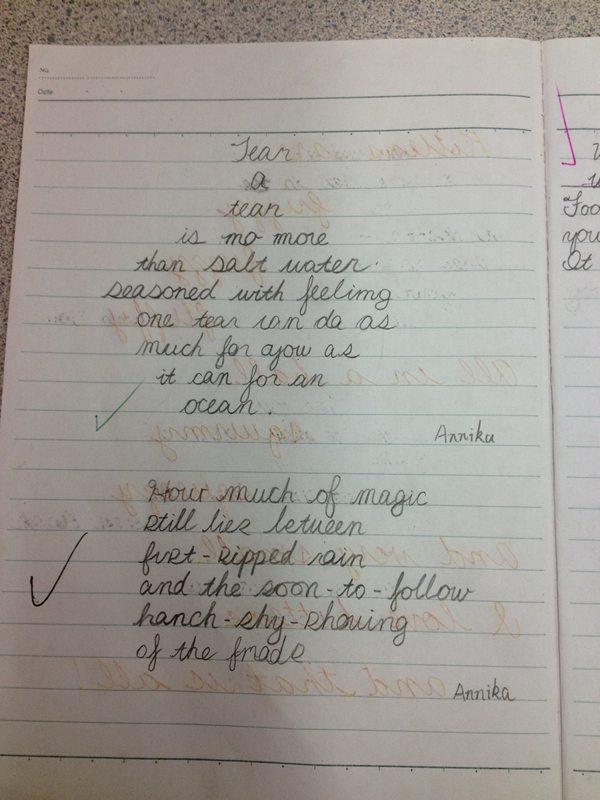 No.
Date
Tear
a
tear
is no more
than salt water
seasoned with feeling
one tear can do as
much for you as
it can for an
ocean.
Annika
How much of magic
still lies between
rain
and the soon-to-follow
hanch-shy-showing
of the
Annika